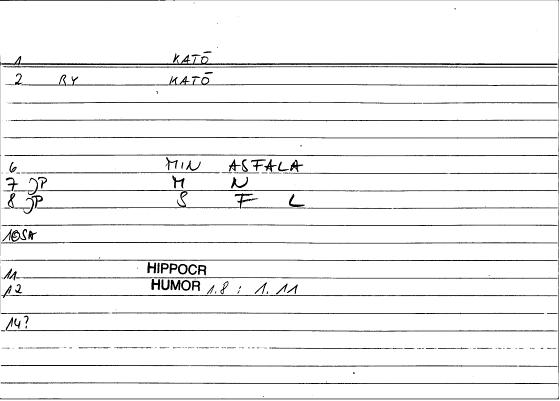 1 KATŌ
2 RY KATŌ
6 MIN ASFALA
7 JP M N
8 JP S F L
10SA
11 HIPPOCR
12 HUMOR 1.8 : 1.11
14?